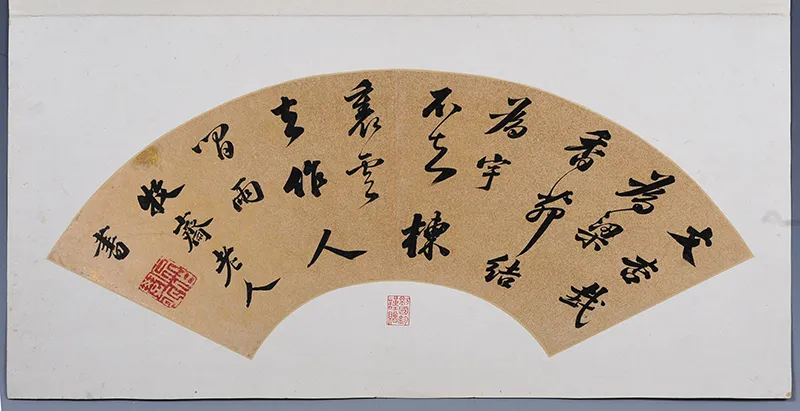 文杏裁
為梁
香茆結
為宇
不知棟
裏雲
去作人
間雨
牧齋老人
書